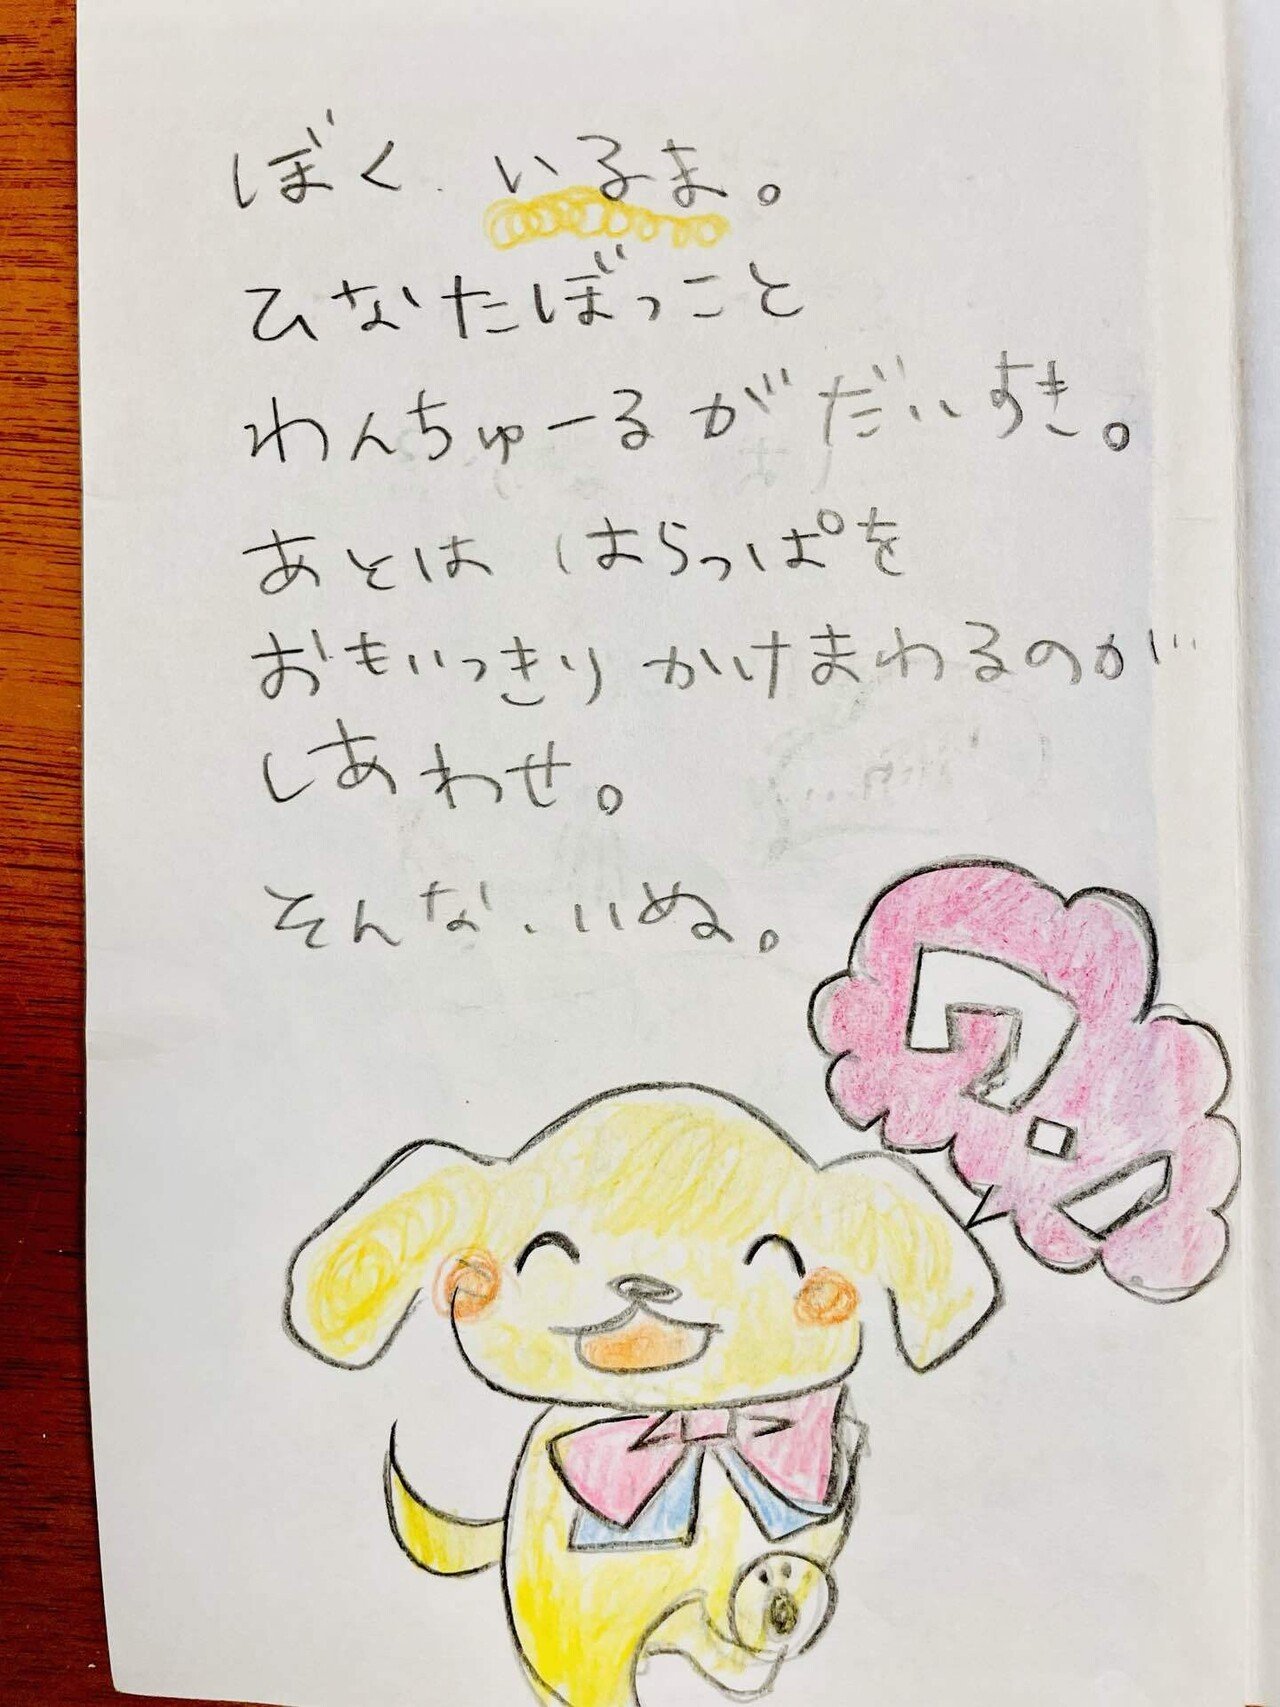 ぼく、いるま。
ひなたぼっこと
わんちゅーるがだいすき。
あとは はらっぱを
おもいっきり かけまわるのが
しあわせ。
そんな、いぬ。
ワン